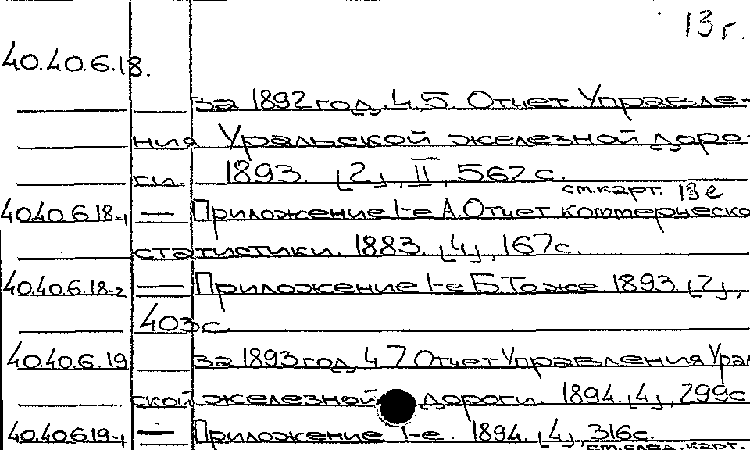 13 г.
40.40.6.18.
за 1892 год. ч. 5. Отчет Управле-
ния Уральской железной доро-
ги. 1893. [2], II, 567 с.
см. карт. 13 е
40.40.6.18-1 — Приложение 1-е А. Отчет коммерческо
статистики. 1883. [4], 167 с.
40.40.6.18-2 — Приложение 1-е Б. Тоже 1893. [2],
403 с.
40.40.6.19 за 1893 год. ч 7 Отчет Управления Урал
ской железной дороги. 1894. [4], 299 с
40.40.6.19-1 — Приложение 1-е. 1894. [4], 316 с.
см. след. карт.